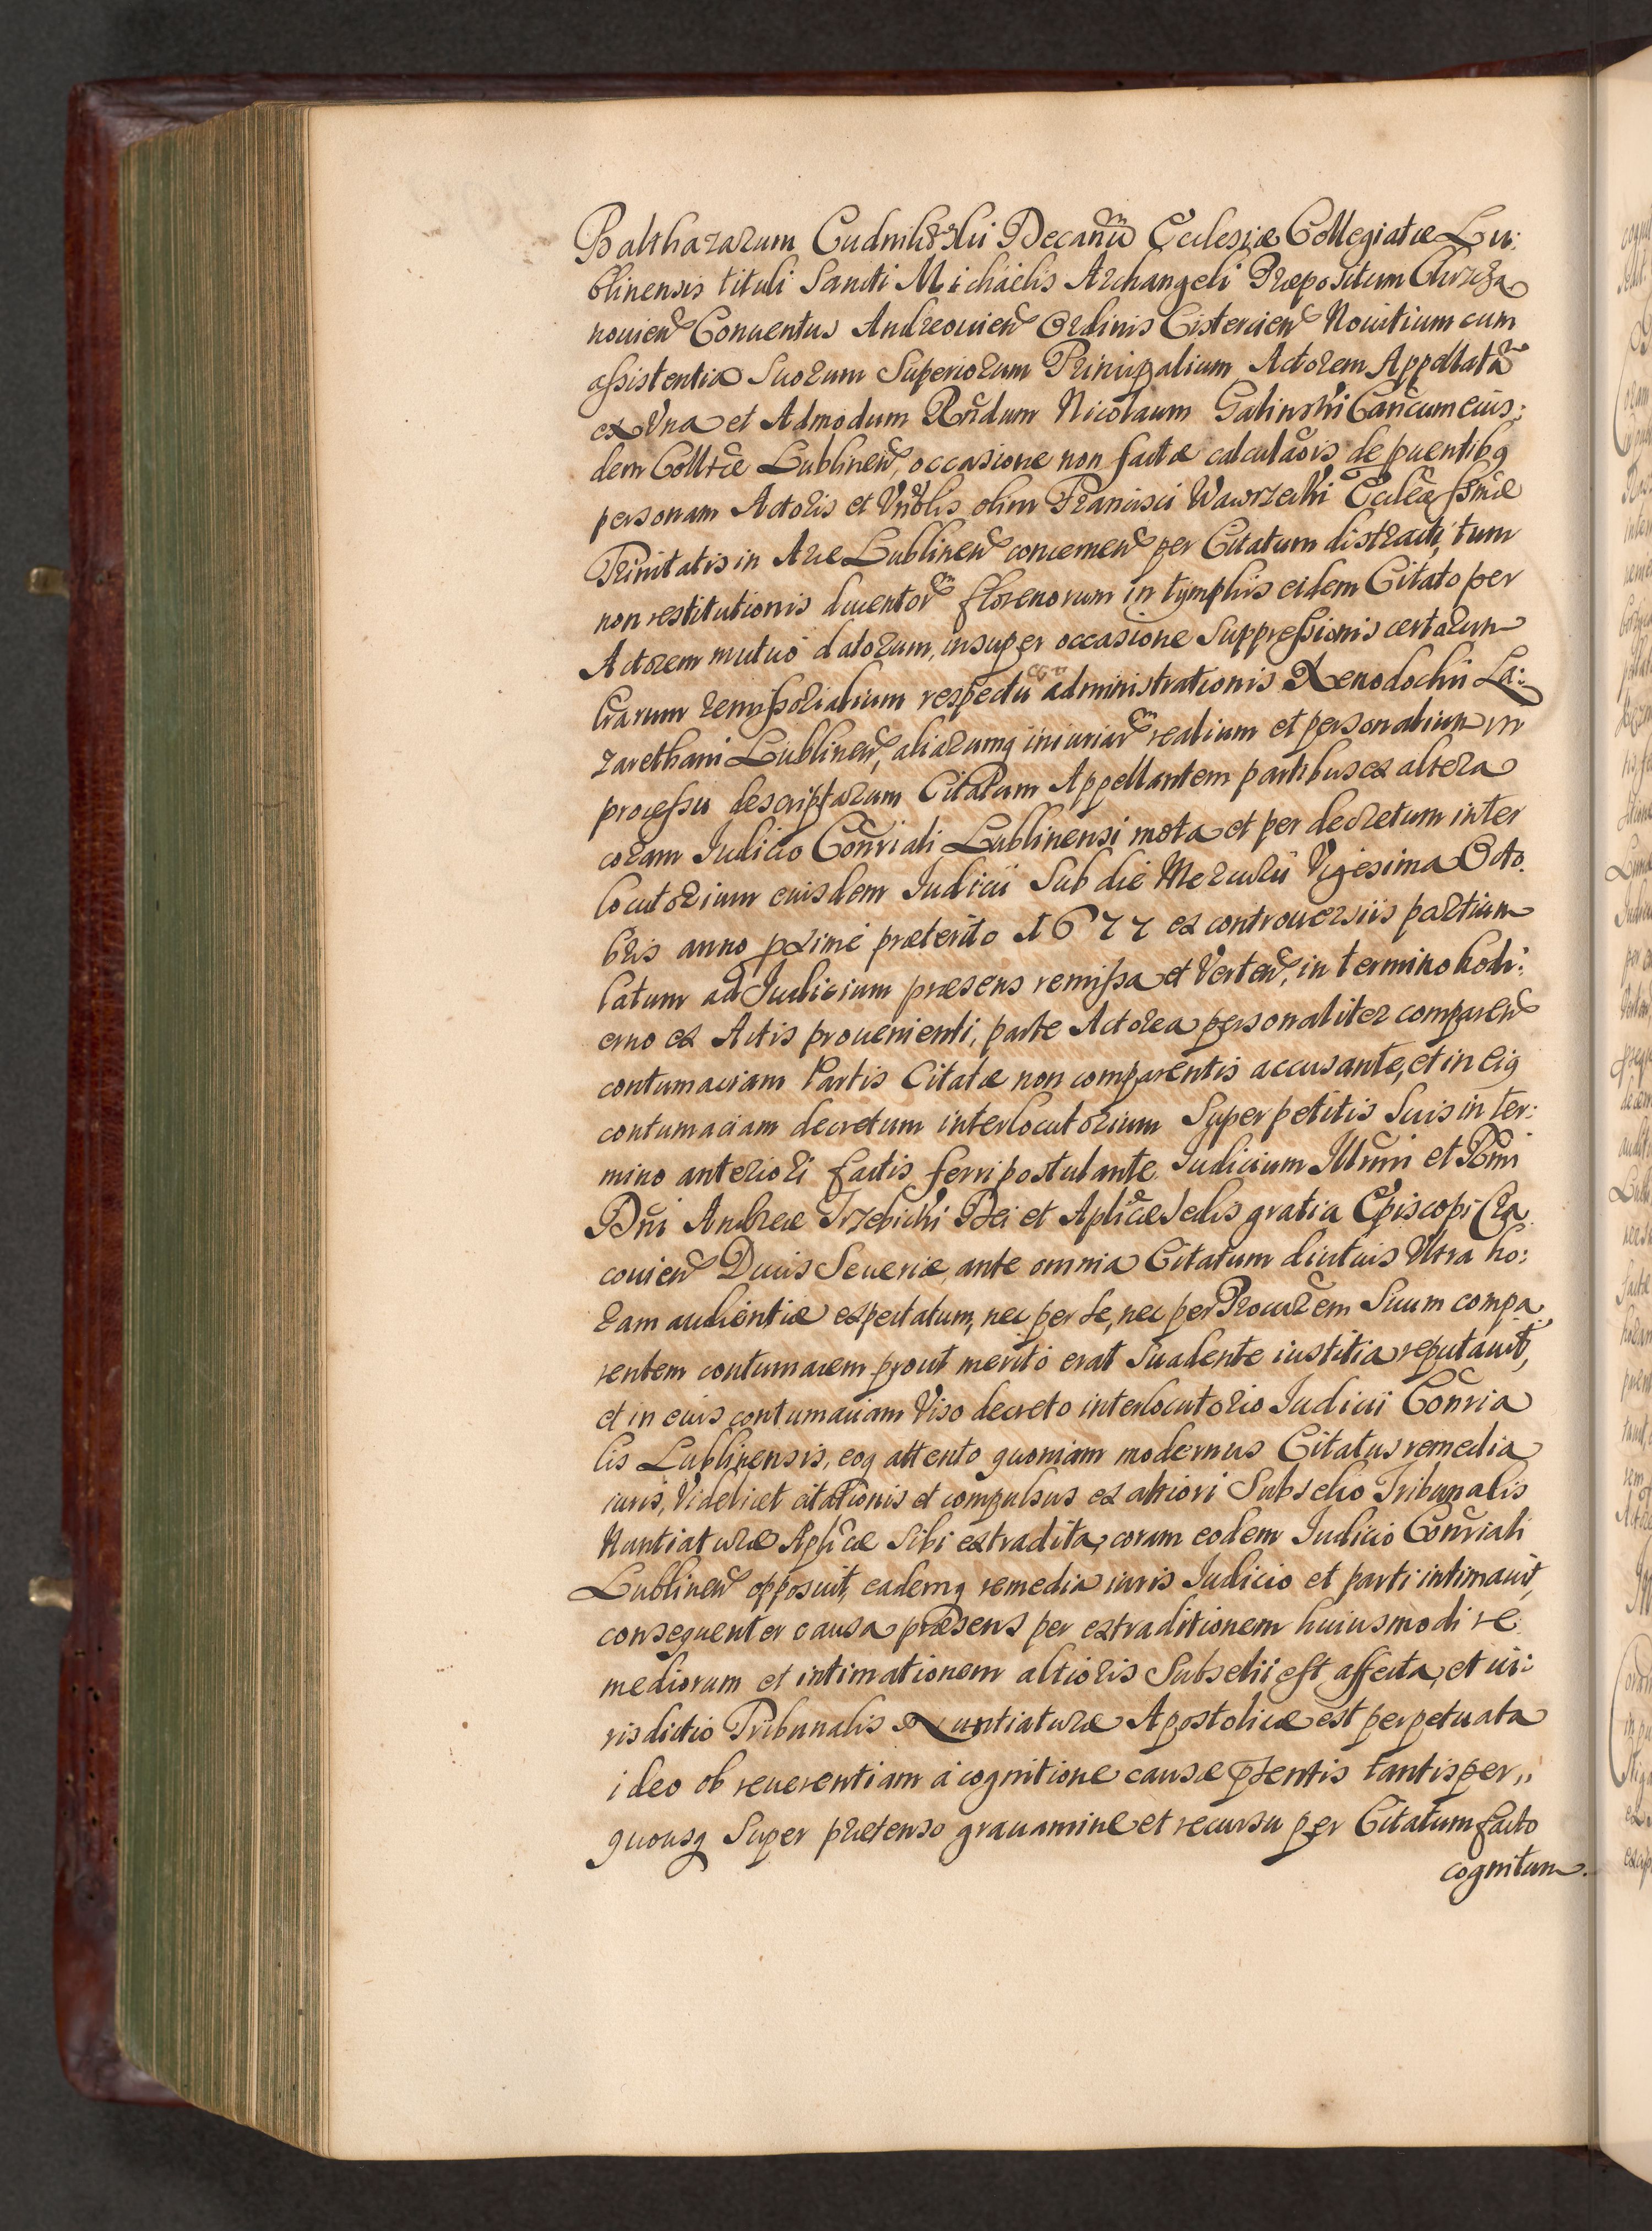 Balthazarum Cudnihoski Decanũ Ecclesiæ Collegiatæ Lu:
blinensis tituli Sancti Michaelis Archangeli Præpositum Chrzcza
nouien Conuentus Andreouien Ordinis Cistercien Nouitium cum
assistentia Suorum Superiorum Principalium Actorem Appellatũ
ex Vna et Admodum Rndum Nicolaum Galinski Cancum eius:
dem Colltæ Lublinen, occasione non factæ calculaõis de puentibq
personam Actoris et Vnblis olim Francisci Wawrzecki Eccleæ ssmæ
Trinitatis in Arce Lublinen concernen per Citatum distracti, tum
non restitutionis ducentor florenorum in tymphis eidem Citato per
Actorem mutuò datorum, insuper occasione Suppressionis certarum
lrarum remissorialium respectu administrationis Xenodochii La:
zarethani Lublinen, aliarumq iniuriar realium et personalium in
processu descriptarum Citatum Appellantem partibus ex altera
coram Iudicio Conriali Lublinensi mota et per decretum inter
locutorium eiusdem Iudicii Sub die Mercurii Vigesima Octo.
bris anno pximè præterito 1677 ex controuersiis partium
latum ad Iudicium præsens remissa et Verten, in termino hodi:
erno ex Actis prouenienti, parte Actorea personaliter comparen
contumaciam Partis Citatæ non comparentis accusante, et in eiq
contumaciam decretum interlocutorium Super petitis Suis in ter:
mino anteriori factis ferri postulante Iudicium Illmi et Rmi
Dni Andreæ Trzebicki Dei et Aplicæ Sedis gratia Episcopi Cra
couien Ducis Seueriæ, ante omnia Citatum diutius Vltra ho:
ram audientiæ expectatum, nec per se, nec per Procurem Suum compa
rentem contumacem prout meritò erat Suadente iustitia reputauit,
et in eius contumaciam Viso decreto interlocutorio Iudicii Conria
lis Lublinensis, eoq attento quoniam modernus Citatus remedia
iuris, Videlicet citationis et compulsus ex altiori Subselio Tribunalis
Nuntiaturæ Aplicæ Sibi extradita, coram eodem Iudicio Conriali
Lublinen opposuit, eademq remedia iuris Iudicio et parti intimauit,
consequenter causa præsens per extraditionem huiusmodi re
mediorum et intimationem altioris Subselii est affecta, et iu:
risdictio Tribunalis Nuntiaturæ Apostolicæ est perpetuata
ideo ob reuerentiam à cognitione causæ pſentis tantisper,,
quousq Super prætenso grauamine et recursu per Citatum facto
cognitum.